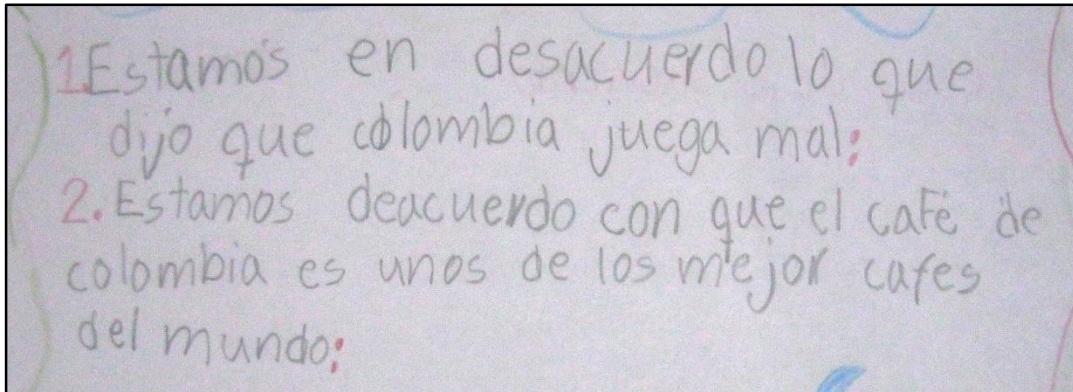 1.Estamos en desacuerdo lo que
dijo que colombia juega mal:
2. Estamos deacuerdo con que el café de
colombia es unos de los mejor cafes
del mundo: